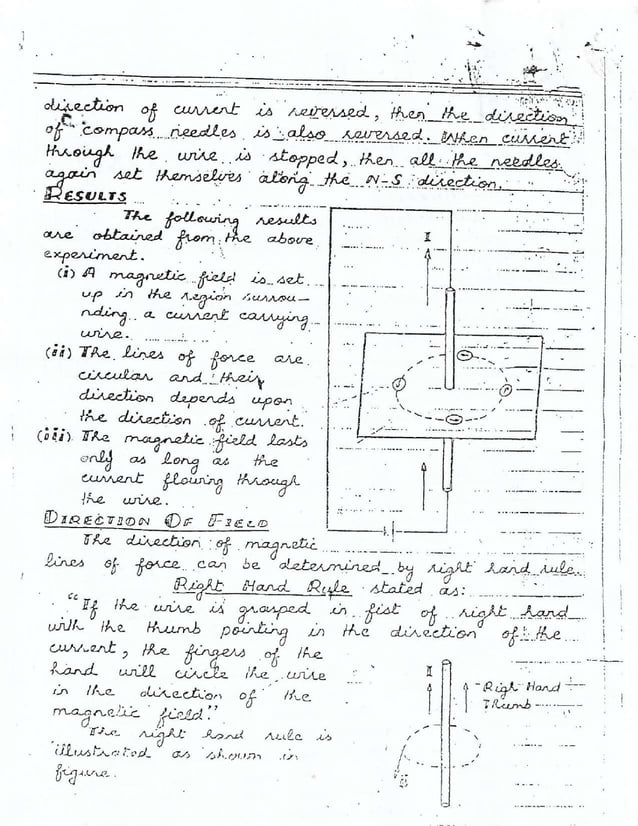 direction of current is reversed, then the direction
of compass needles is also reversed. When current
through the wire is stopped, then all the needles
again set themselves along the N-S direction.
RESULTS
The following results
are obtained from the above
experiment.
(i) A magnetic field is set
up in the region surrou-
nding a current carrying
wire.
(ii) The lines of force are
circular and their
direction depends upon
the direction of current.
(iii) The magnetic field lasts
only as long as the
current flowing through
the wire.
I
DIRECTION OF FIELD
The direction of magnetic
lines of force can be determined by right hand rule.
Right Hand Rule stated as:
"If the wire is grasped in fist of right hand
with the thumb pointing in the direction of the
current, the fingers of the
hand will circle the wire
in the direction of the
magnetic field."
The right hand rule is
illustrated as shown in
figure.
I
Righ Hand
Thumb
B